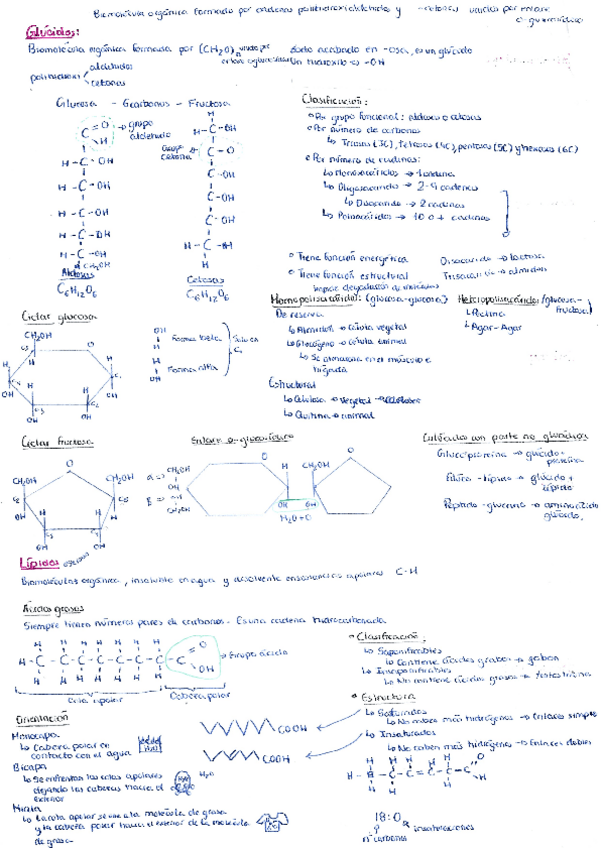 Biomolécula orgánica formada por cadenas polihidroxialdehidos y -cetonas unidas por enlace
o-glucosídico
Glúcidos:
Biomolécula orgánica formada por (CH₂O)n unidos por
Acaba nombrado en -osa, es un glúcido
Un hidroxilo es -OH
polihidroxi
aldehídos
cetonas
Glucosa - 6 carbonos - Fructosa
grupo
aldehído
Grupo
cetona
Aldosas
C₆H₁₂O₆
Cetosas
C₆H₁₂O₆
Clasificación:
Por grupo funcional: aldosas o cetosas
Por número de carbonos
↳ Triosas (3C), tetrosas (4C), pentosas (5C) y hexosas (6C)
Por número de cadenas:
↳ Monosacáridos → 1 cadena
↳ Oligosacárido → 2-9 cadenas
↳ Disacárido → 2 cadenas
↳ Polisacáridos → 10 o + cadenas
Tiene función energética
Disacárido → lactosa
Tiene función estructural
Trisacárido → almidón
Homopolisacárido: (glucosa-glucosa)
Heteropolisacárido: (glucosa-
fructosa)
De reserva
↳ Pectina
↳ Almidón → célula vegetal
↳ Agar-Agar
↳ Glucógeno → célula animal
↳ Se almacena en el músculo e
hígado
Estructural
↳ Celulosa → vegetal →
↳ Quitina → animal
Ciclar glucosa
CH₂OH
Forma beta
Forma alfa
Solo en
C₁
Ciclar fructosa
Enlace o-glucosídico
H₂O + O
Glúcidos con parte no glucídica
Glucoproteína → glúcido +
proteína
Gluco-lípido → glúcido +
lípido
Peptido-glucano → aminoácido
glúcido
Lípidos
Biomoléculas orgánica, insoluble en agua y disolvente en sustancias apolares C-H
Ácidos grasos
Siempre tienen números pares de carbonos - Es una cadena hidrocarbonada
Grupo ácido
Cola apolar
Cabeza polar
Clasificación:
↳ Saponificables
↳ Contiene ácidos grasos → jabón
↳ Insaponificables
↳ No contiene ácidos grasos → testosterona
Estructura
↳ Saturados
↳ No caben más hidrógenos → Enlaces simples
↳ Insaturados
↳ No caben más hidrógenos → Enlaces dobles
COOH
COOH
Orientación
Monocapa
↳ Cabeza polar en
contacto con el agua
Bicapa
↳ Se enfrentan las colas apolares
dejando las cabezas hacia el
exterior
H₂O
Micela
↳ La cola apolar se une a la molécula de grasa
y la cabeza polar hacia el exterior de la molécula
de grasa
18:0
insaturaciones
nº carbonos